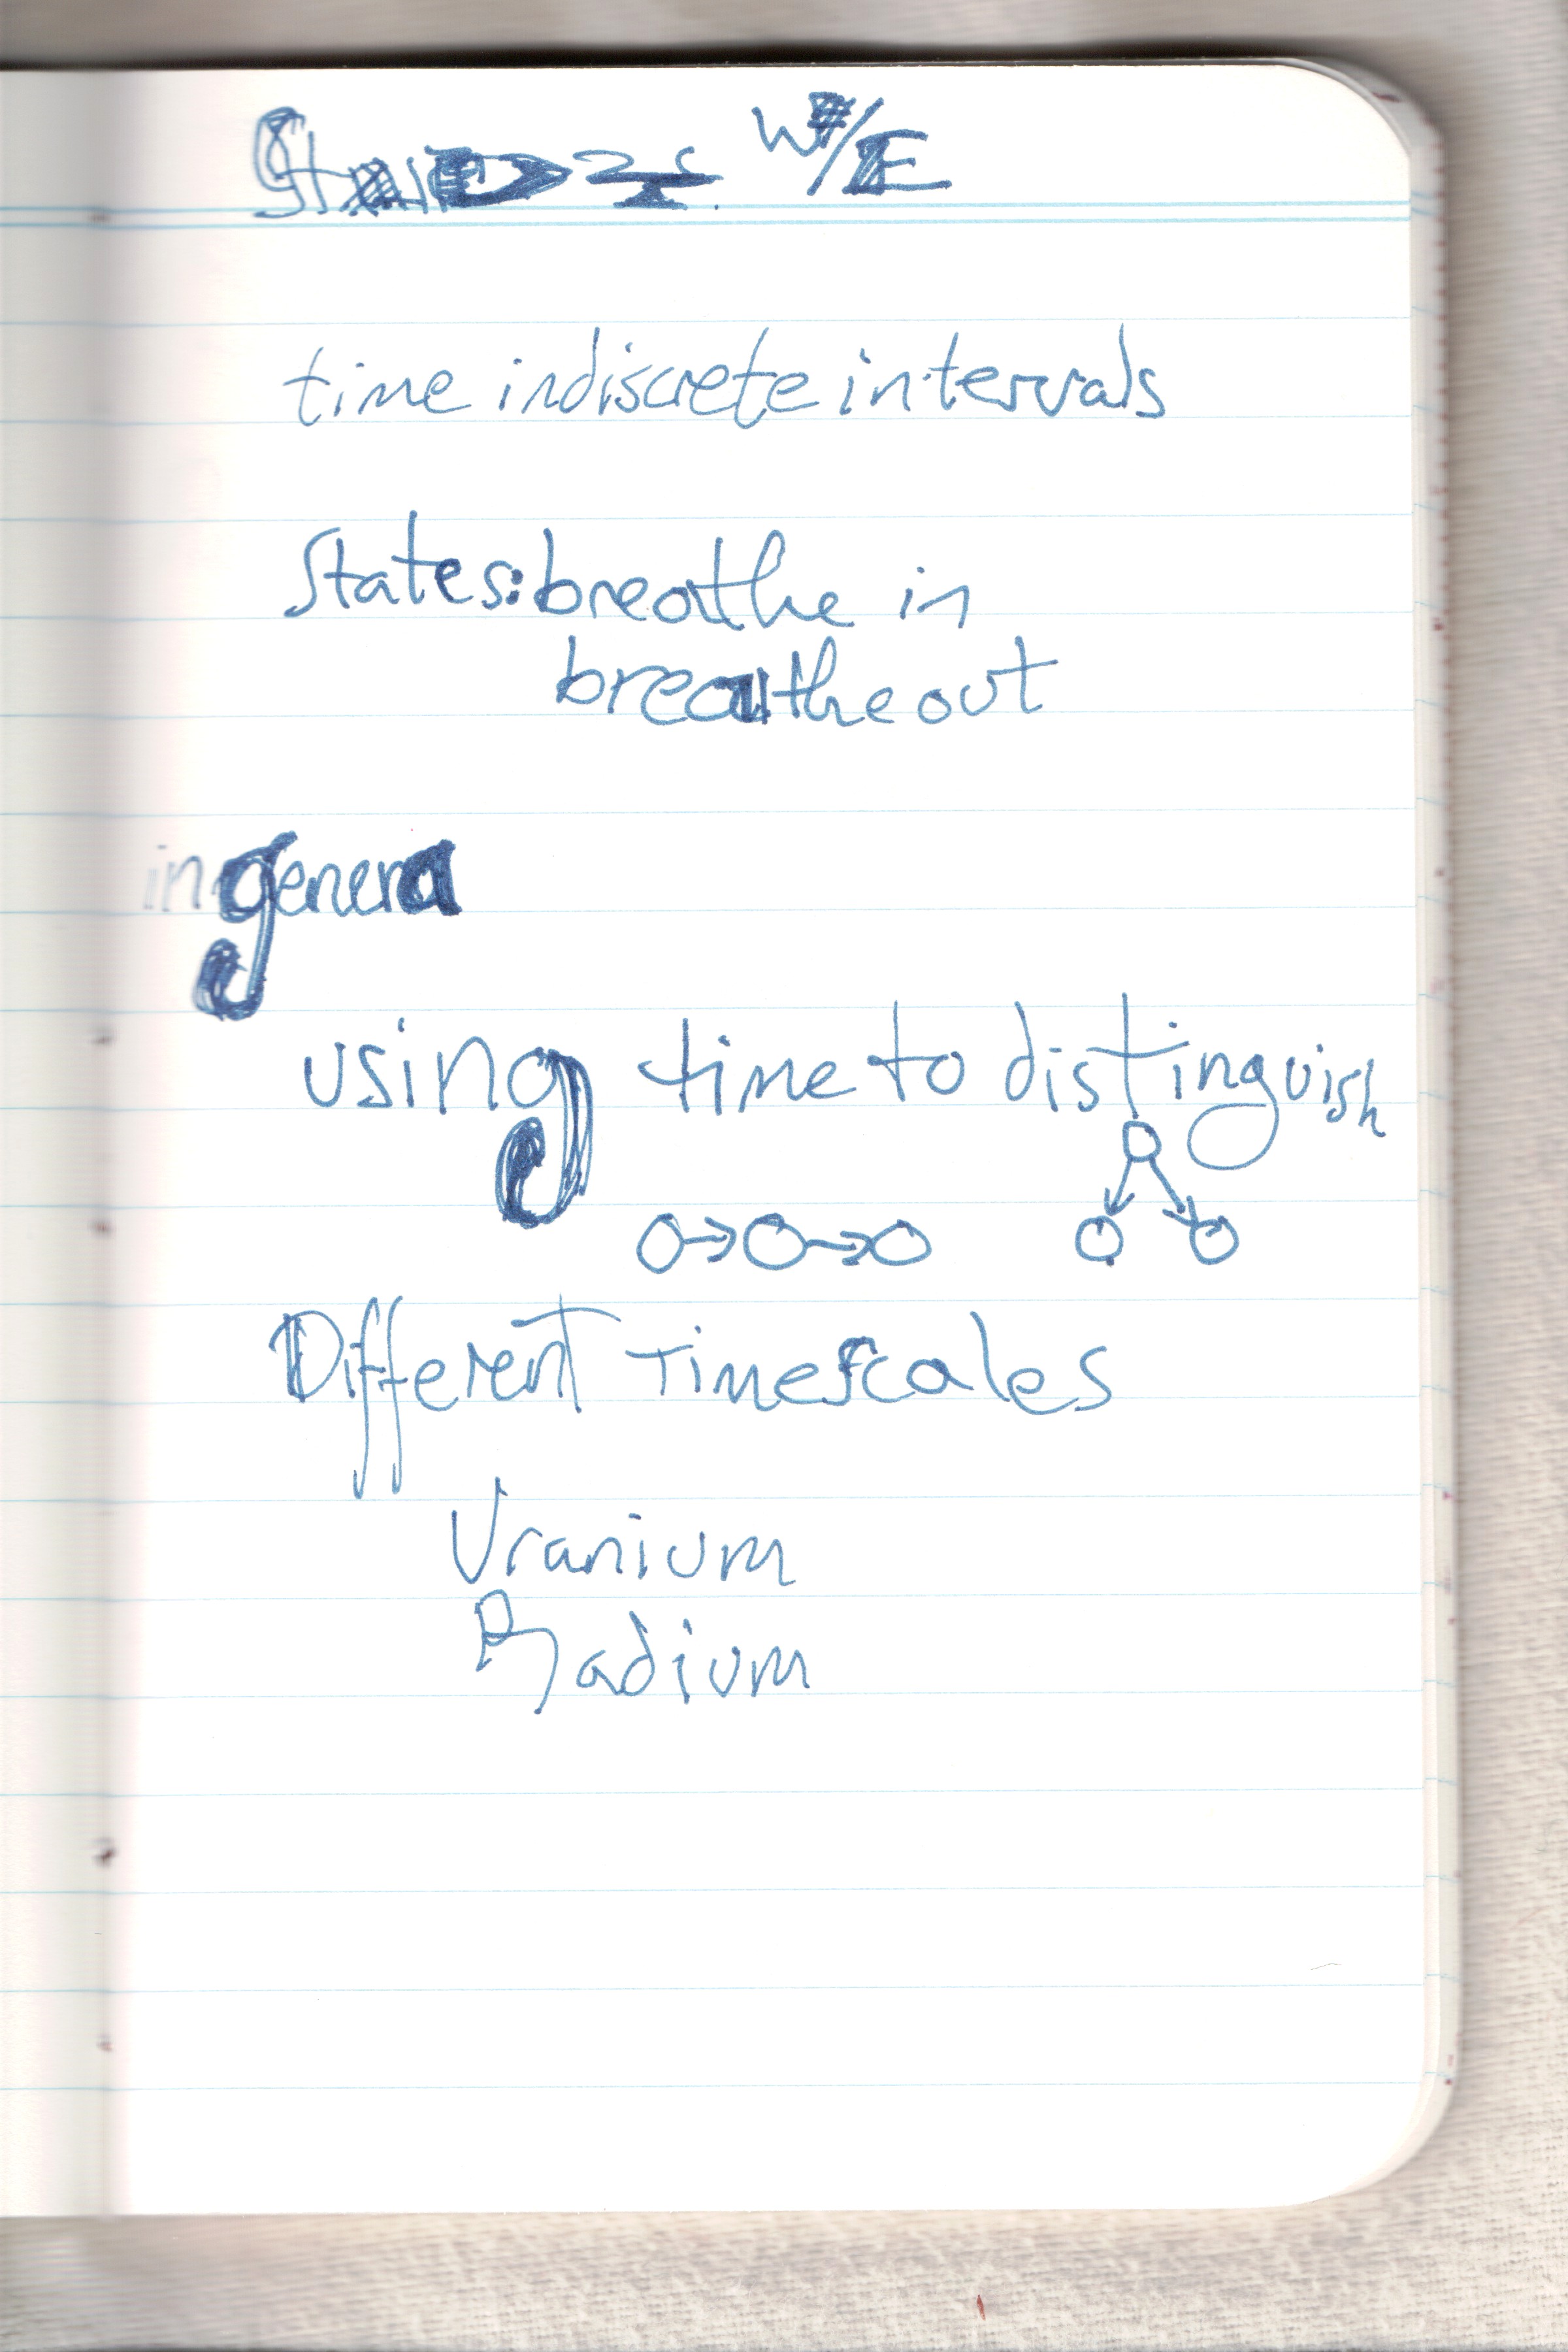 time in discrete intervals
States: breathe in
breathe out
in genera
using time to distinguish
Different Timescales
Uranium
Radium